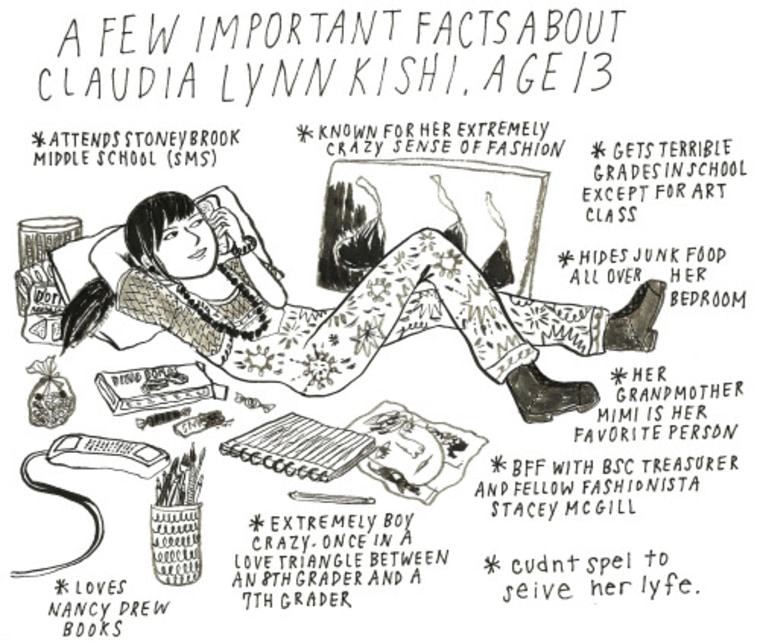 A FEW IMPORTANT FACTS ABOUT
CLAUDIA LYNN KISHI, AGE 13
* ATTENDS STONEYBROOK
MIDDLE SCHOOL (SMS)
* KNOWN FOR HER EXTREMELY
CRAZY SENSE OF FASHION
* GETS TERRIBLE
GRADES IN SCHOOL
EXCEPT FOR ART
CLASS
* HIDES JUNK FOOD
ALL OVER HER
BEDROOM
* HER
GRANDMOTHER
MIMI IS HER
FAVORITE PERSON
* BFF WITH BSC TREASURER
AND FELLOW FASHIONISTA
STACEY MCGILL
* EXTREMELY BOY
CRAZY. ONCE IN A
LOVE TRIANGLE BETWEEN
AN 8TH GRADER AND A
7TH GRADER
* cudnt spel to
seive her lyfe.
* LOVES
NANCY DREW
BOOKS